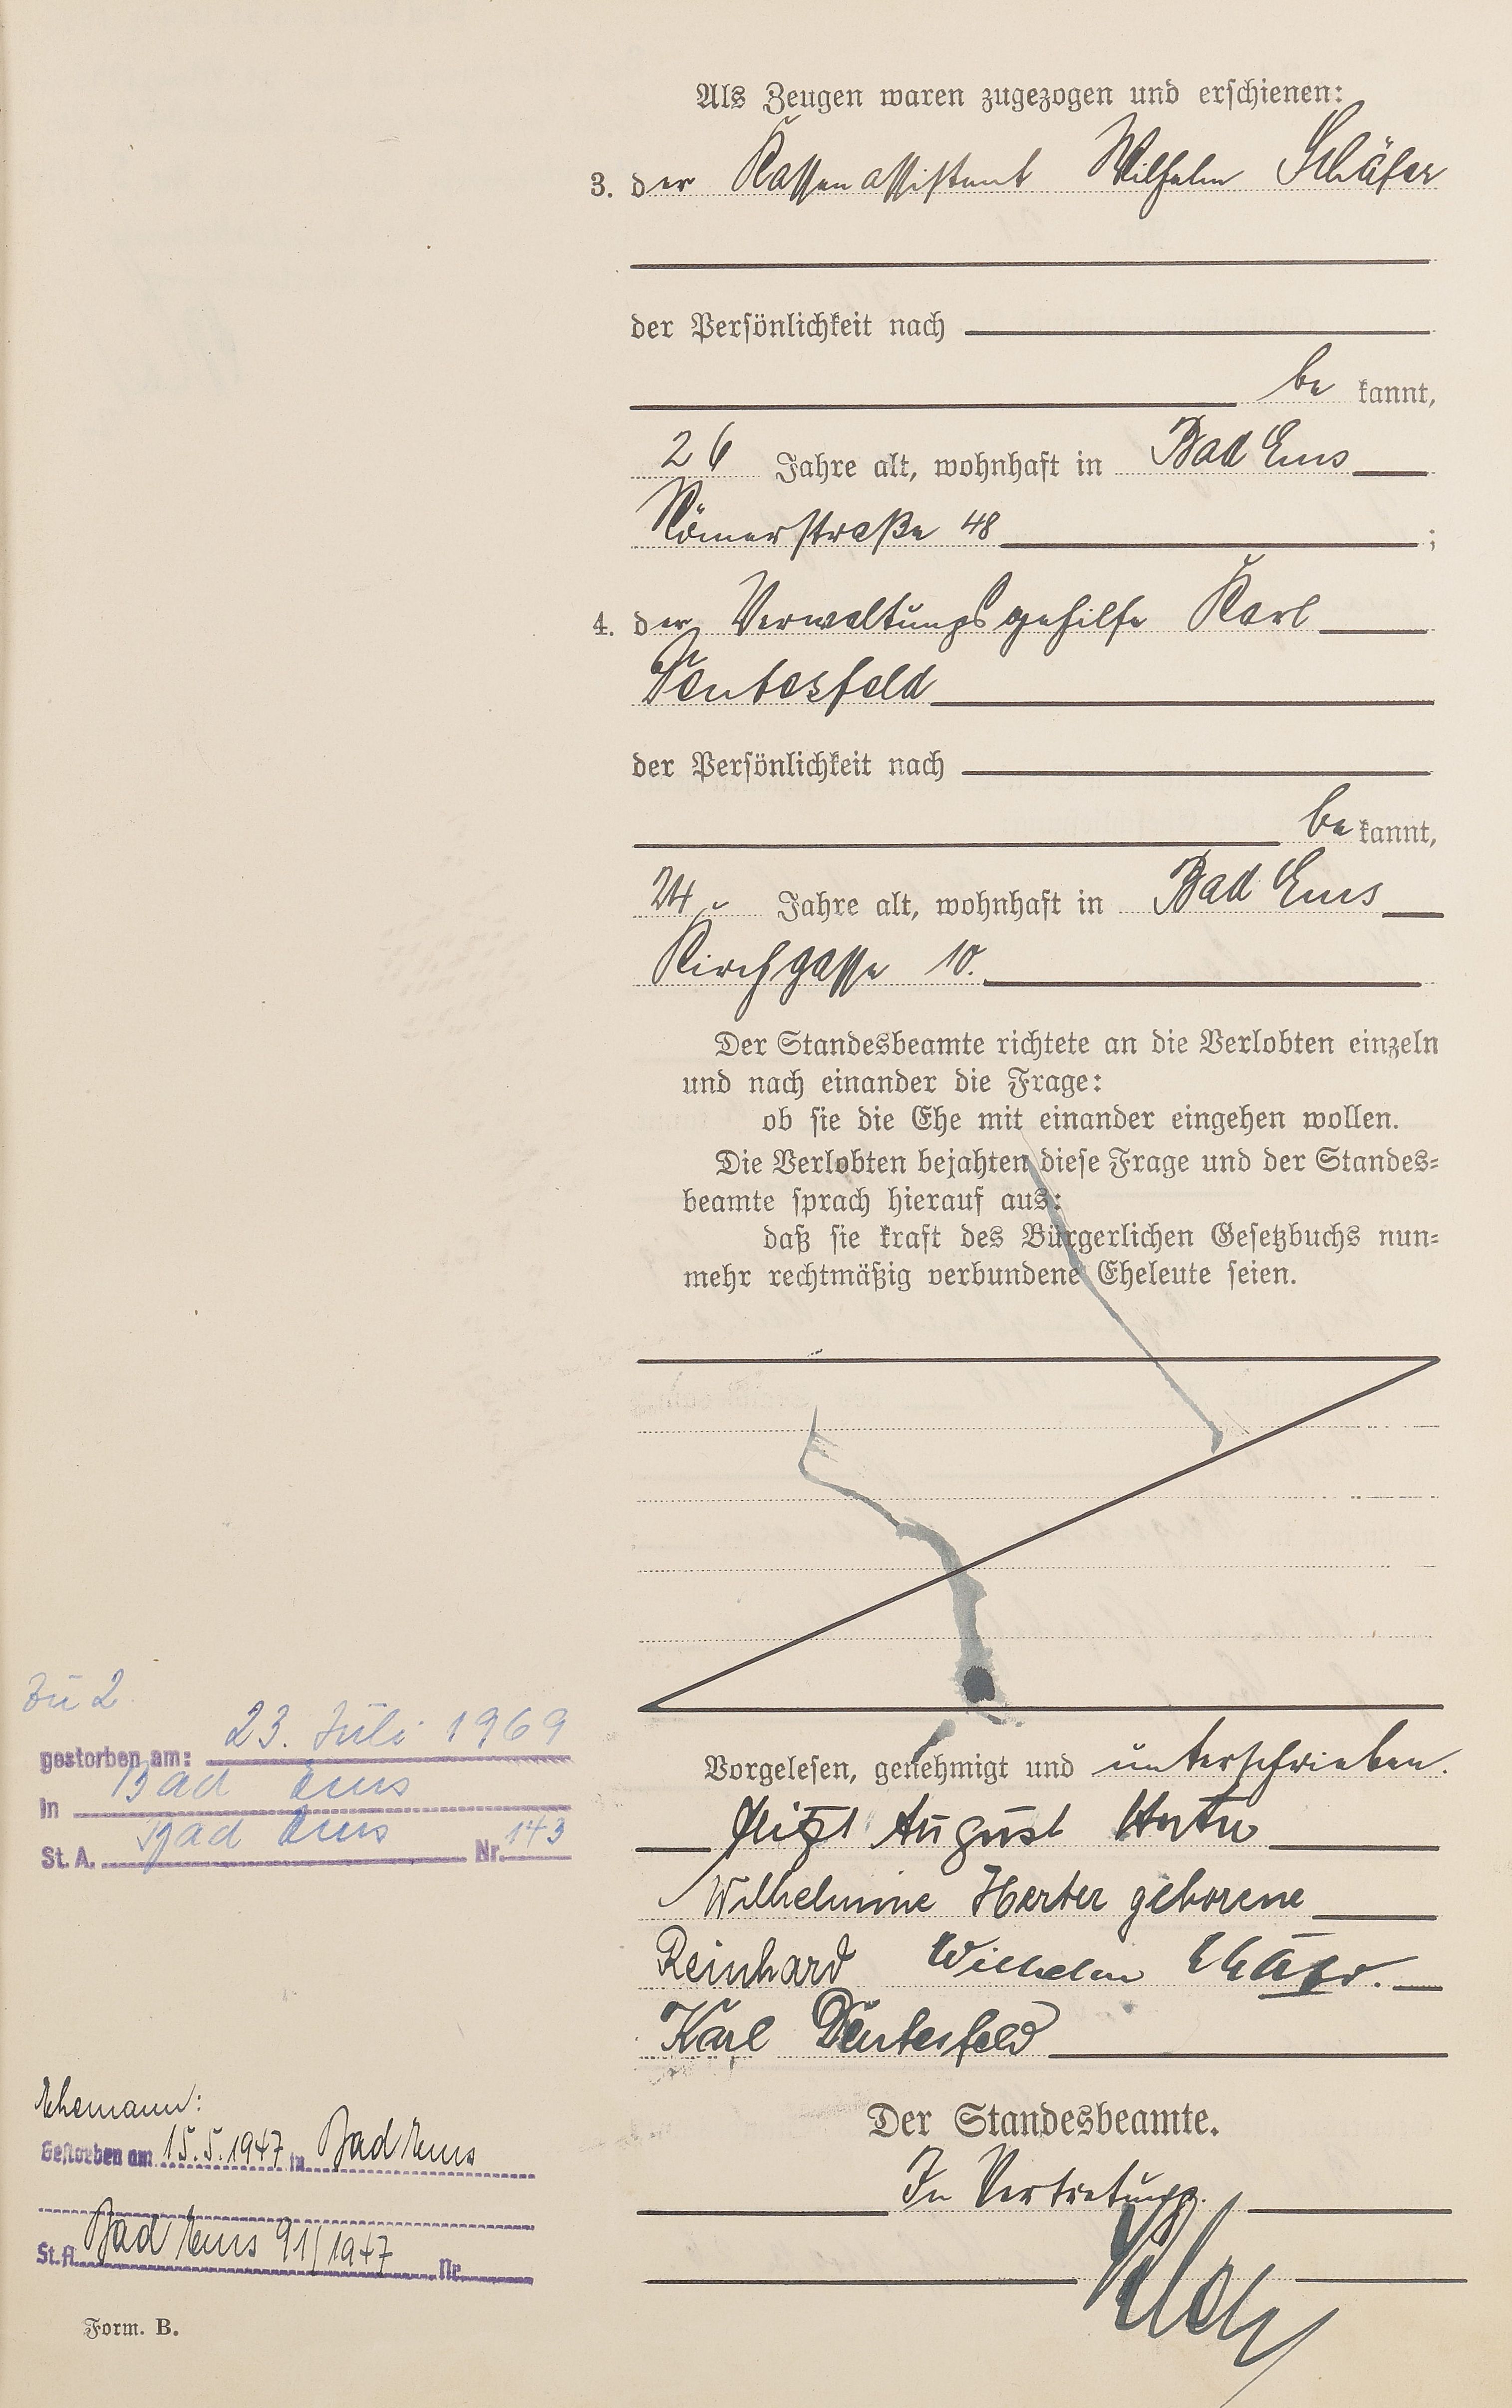 Als Zeugen waren zugezogen und erschienen:
3. der Kassenassistent Wilhelm Schäfer
der Persönlichkeit nach
be kannt,
26 Jahre alt, wohnhaft in Bad Ems
Römerstraße 48 ;
4. der Verwaltungsgehilfe Karl
der Persönlichkeit nach
be kannt,
24 Jahre alt, wohnhaft in Bad Ems
Kirchgasse 10.
Der Standesbeamte richtete an die Verlobten einzeln
und nach einander die Frage:
ob sie die Ehe mit einander eingehen wollen.
Die Verlobten bejahten diese Frage und der Standes=
beamte sprach hierauf aus:
daß sie kraft des Bürgerlichen Gesetzbuchs nun=
mehr rechtmäßig verbundene Eheleute seien.
Vorgelesen, genehmigt und unterschrieben.
August
Wilhelmine Herter geborene
Reinhard Wilhelm Schäfer.
Karl
Der Standesbeamte.
In Vertretung.
zu 2
gestorben am: 23. Juli 1969
in Bad Ems
St. A. Bad Ems Nr. 143
Ehemann:
Gestorben am 15.5.1947 in Bad Ems
St. A. Bad Ems 91/1947 Nr.
Form. B.